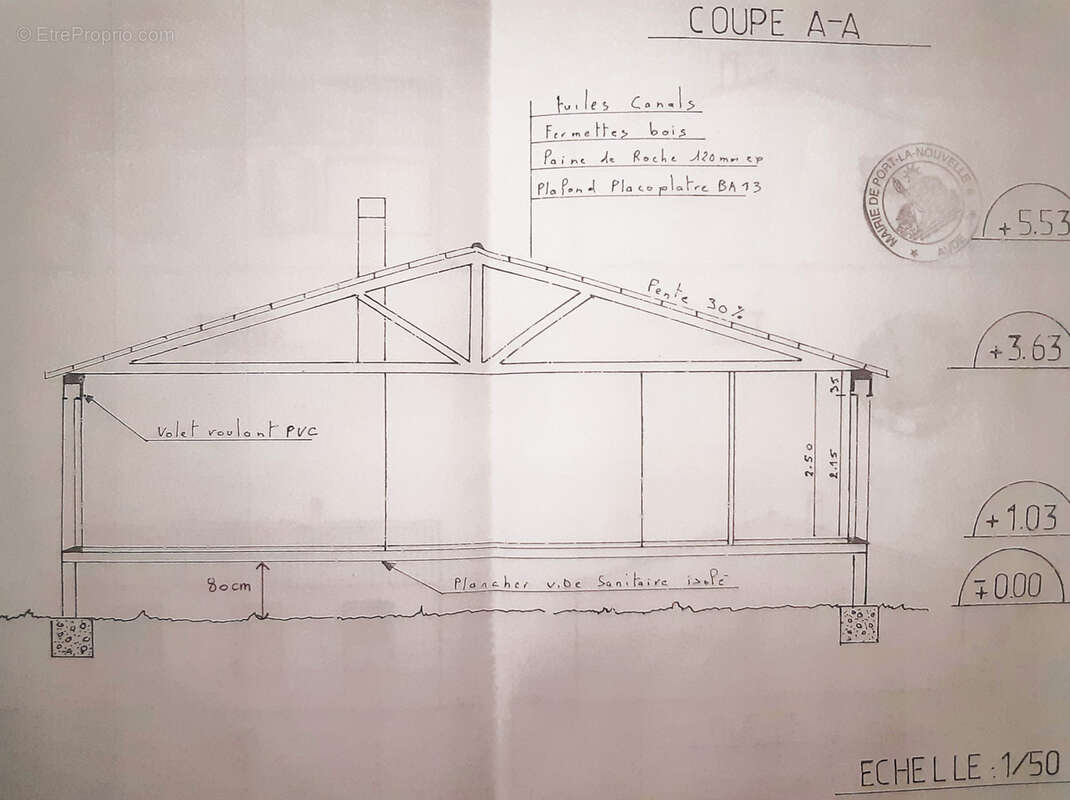 © EtreProprio.com
COUPE A-A
tuiles Canals
Fermettes bois
Laine de Roche 120mm ep
Plafond Placoplatre BA 13
MAIRIE DE PORT-LA-NOUVELLE
* AUDE *
+5.53
Pente 30%
+3.63
35
Volet roulant PVC
2.50
2.15
+1.03
80cm
Plancher vide Sanitaire isolé
∓0.00
ECHELLE : 1/50